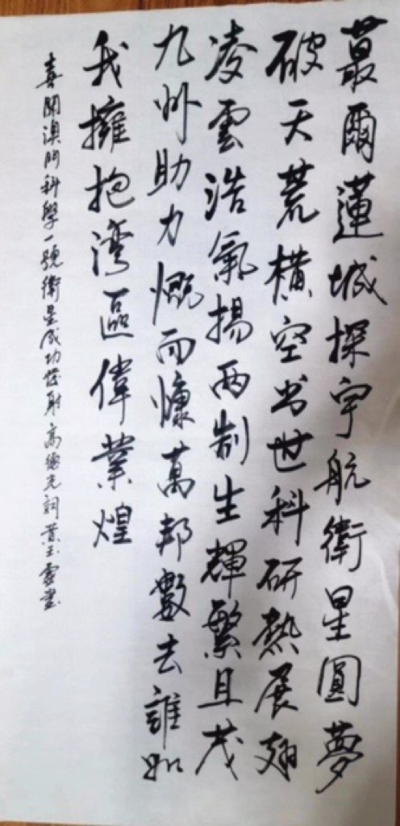 蕞爾蓮城探宇航衛星圓夢
破天荒橫空出世科研熱展翅
凌雲浩氣揚兩制生輝繁且茂
九州助力慨而慷萬邦數去誰如
我擁抱灣區偉業煌
喜聞澳門科學一號衛星成功發射高德光詞黃玉雲書